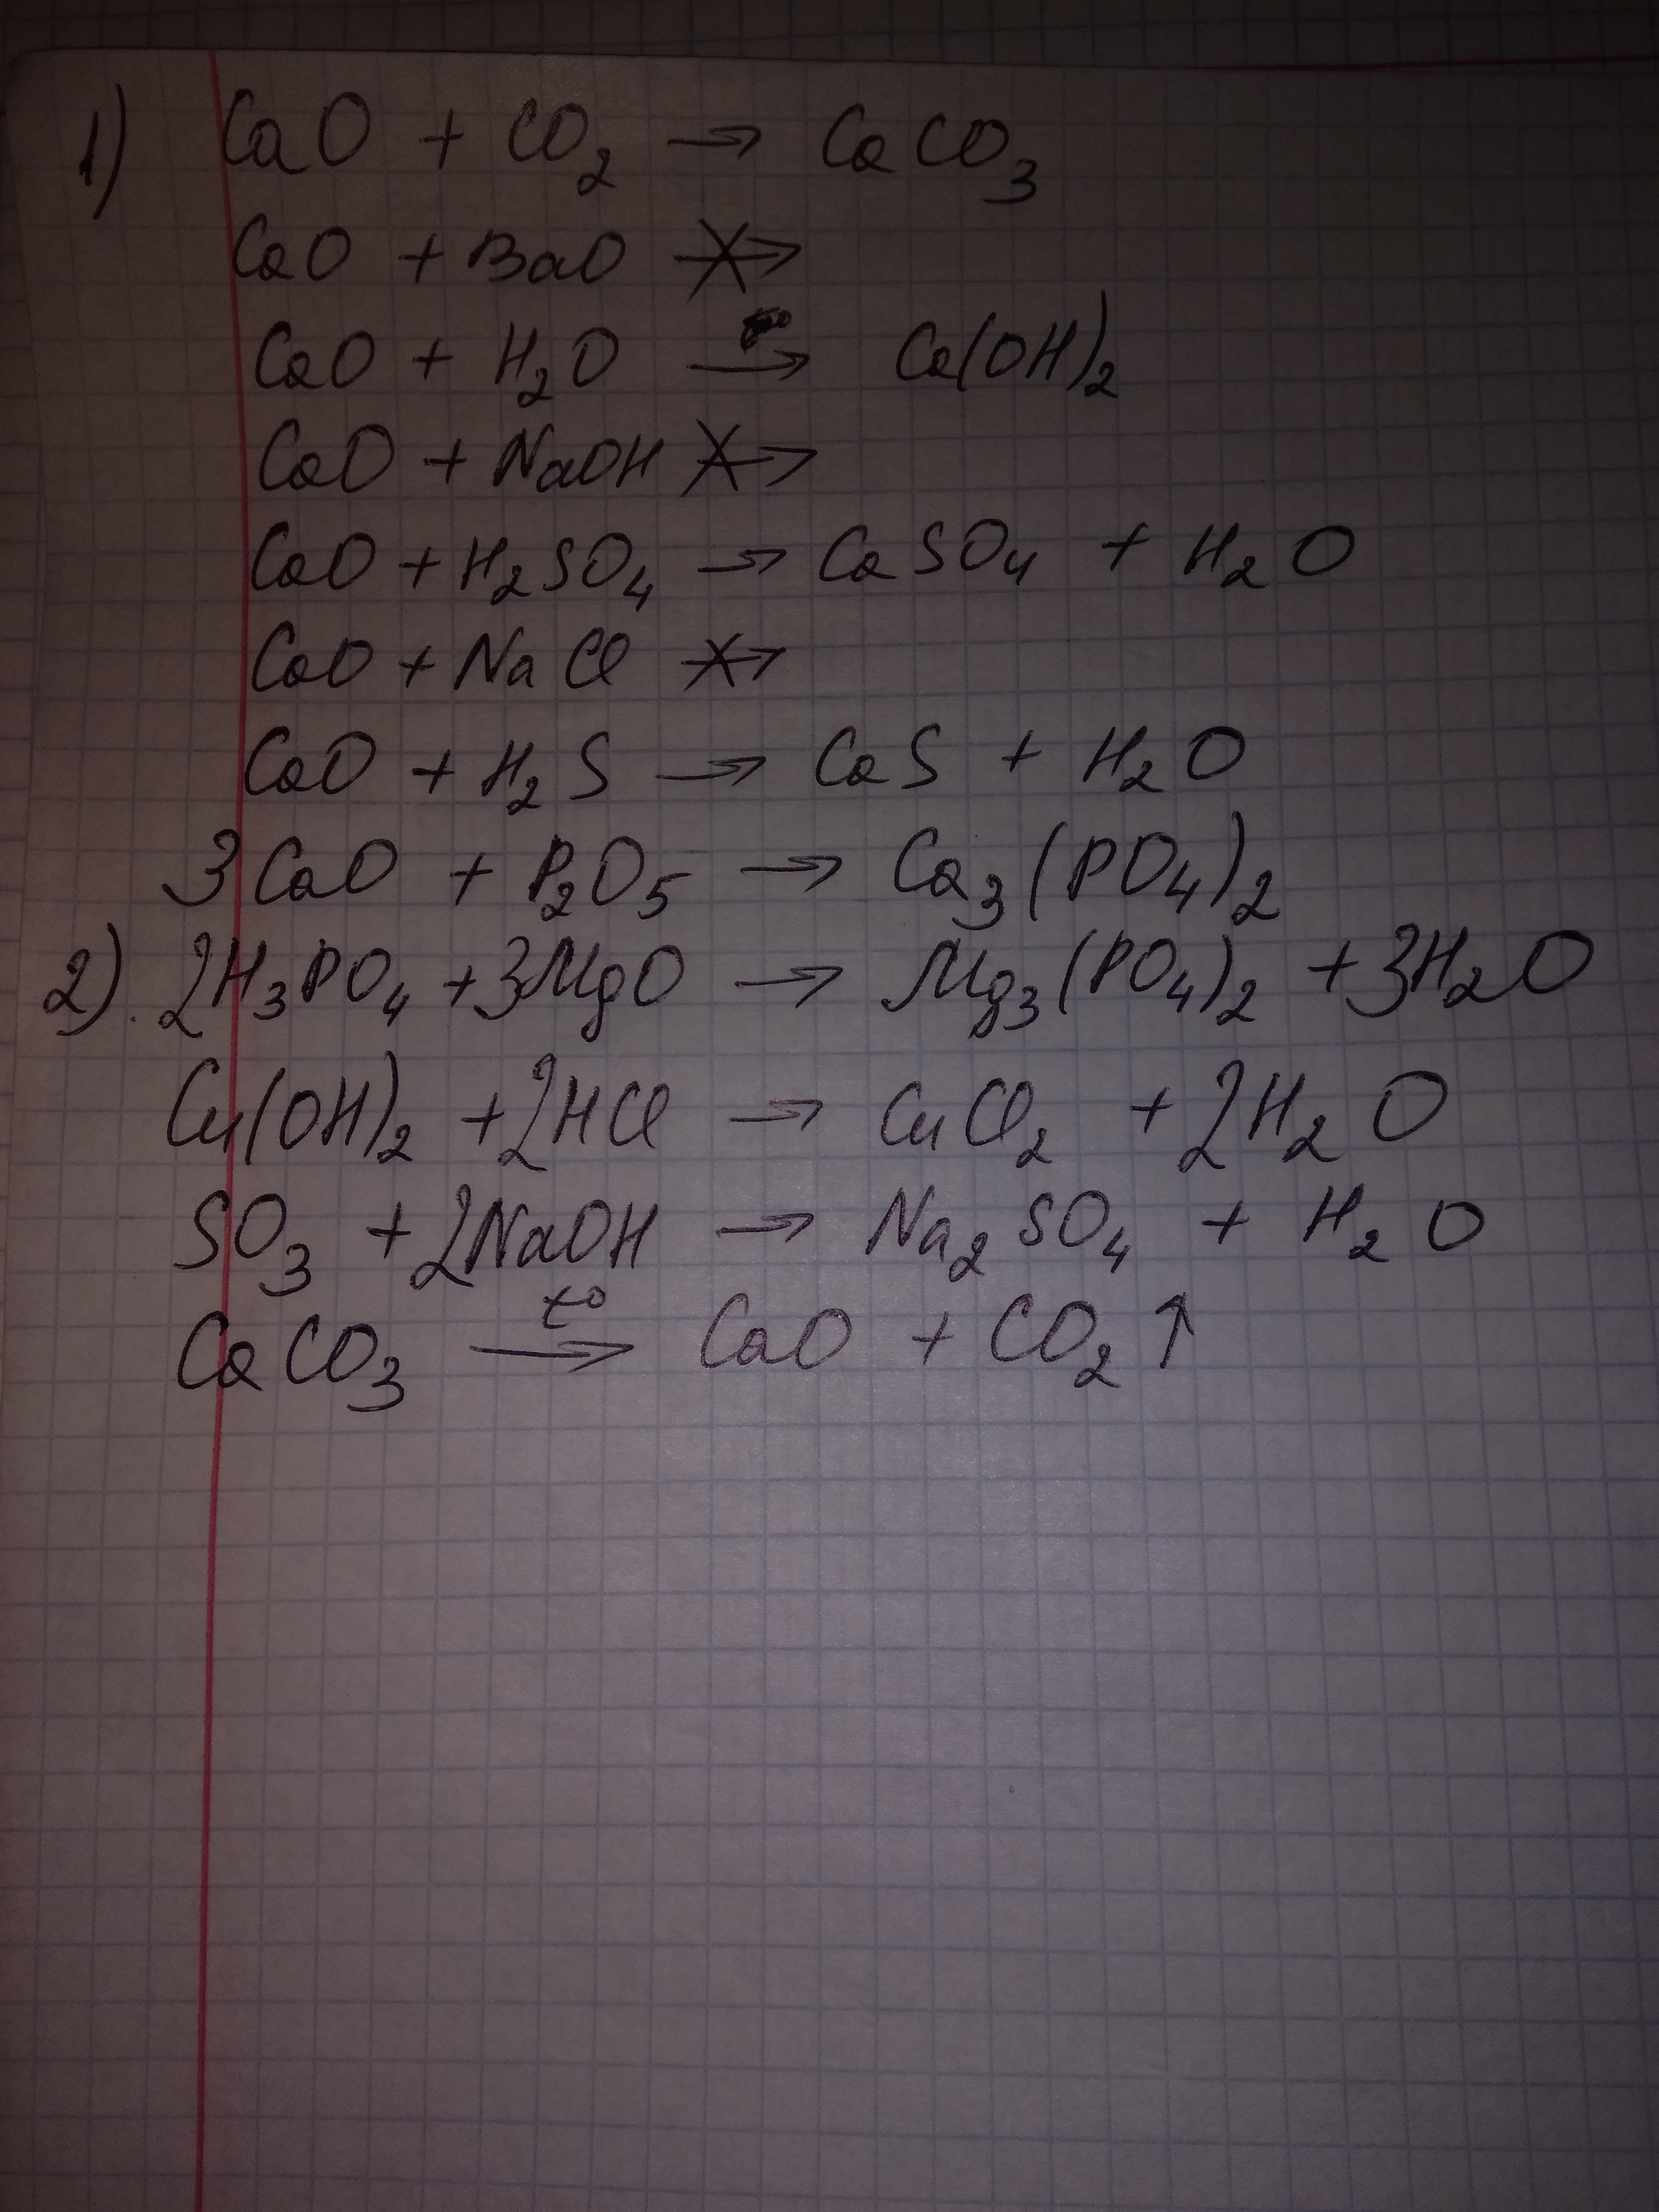 1) CaO + CO₂ → CaCO₃
CaO + BaO ↛
CaO + H₂O → Ca(OH)₂
CaO + NaOH ↛
CaO + H₂SO₄ → CaSO₄ + H₂O
CaO + NaCl ↛
CaO + H₂S → CaS + H₂O
3CaO + P₂O₅ → Ca₃(PO₄)₂
2). 2H₃PO₄ + 3MgO → Mg₃(PO₄)₂ + 3H₂O
Cu(OH)₂ + 2HCl → CuCl₂ + 2H₂O
SO₃ + 2NaOH → Na₂SO₄ + H₂O
CaCO₃ —t°→ CaO + CO₂↑